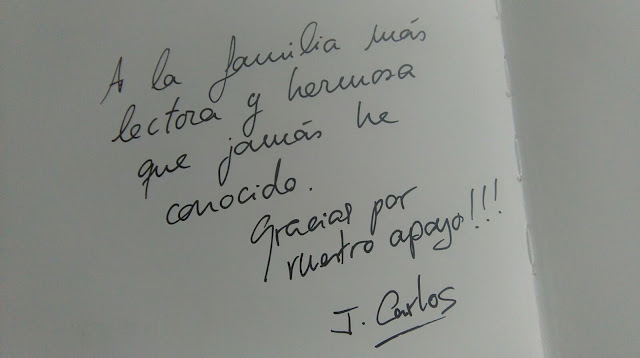 A la familia más
lectora y hermosa
que jamás he
conocido.
Gracias por
vuestro apoyo!!!
J. Carlos